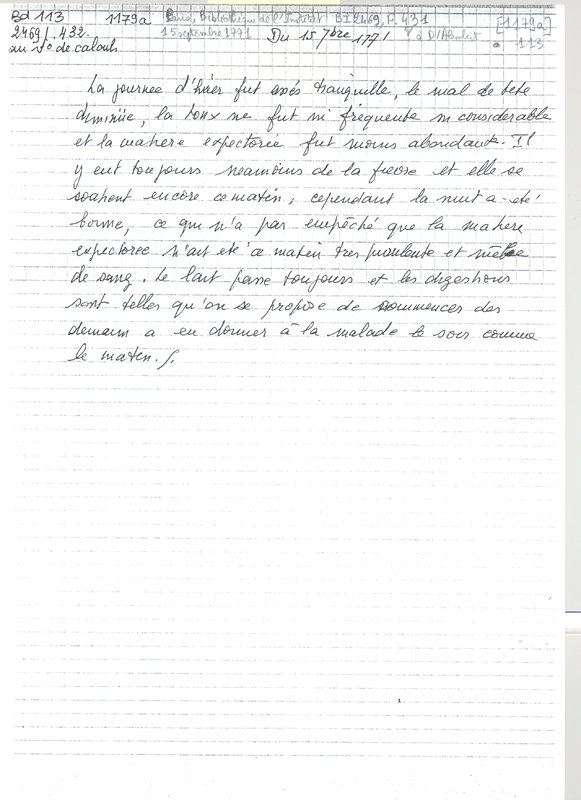 Bd 113 1179a Paris, Bibliothèque de l'Institut BI 2469, p. 431 [1179a]
2469 f. 432. 15 septembre 1771 Du 15 7bre 1771 ? à D'Alembert 113
au v° de calculs
La journée d'hier fut assés tranquille, le mal de tete
diminüe, la toux ne fut ni frequente ni considerable
et la matiere expectorée fut moins abondante. Il
y eut toujours neamoins de la fievre et elle se
soutient encore ce matin, cependant la nuit a été
bonne, ce qui n'a pas empêché que la matiere
expectorée n'ait eté ce matin tres purulente et mêlée
de sang. Le lait passe toujours et les digestions
sont telles qu'on se propose de commencer des
demain a en donner à la malade le soir comme
le matin. /.